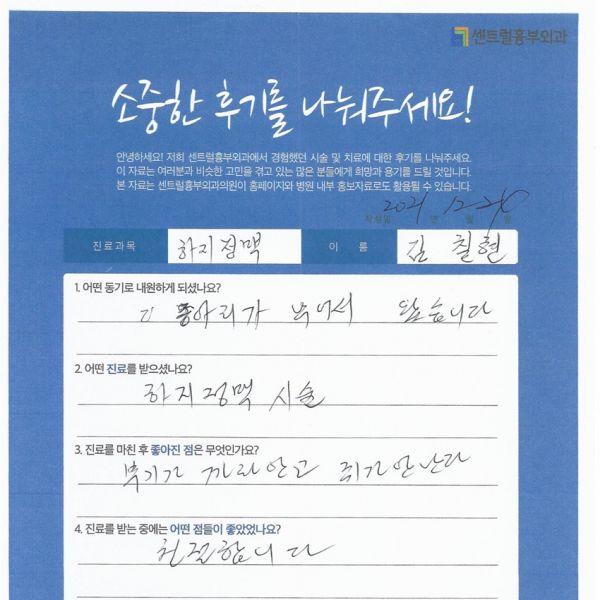 센트럴흉부외과
소중한 후기를 나눠주세요!
안녕하세요! 저희 센트럴흉부외과에서 경험했던 시술 및 치료에 대한 후기를 나눠주세요.
이 자료는 여러분과 비슷한 고민을 겪고 있는 많은 분들에게 희망과 용기를 드릴 것입니다.
본 자료는 센트럴흉부외과의원이 홈페이지와 병원 내부 홍보자료로도 활용될 수 있습니다.
작성일 2021 년 12 월 일
진료과목 하지정맥 이 름 김 철현
1. 어떤 동기로 내원하게 되셨나요?
종아리가 부어서
2. 어떤 진료를 받으셨나요?
하지정맥 시술
3. 진료를 마친 후 좋아진 점은 무엇인가요?
부기가 가라안고 쥐가 안난다
4. 진료를 받는 중에는 어떤 점들이 좋았었나요?
친절합니다